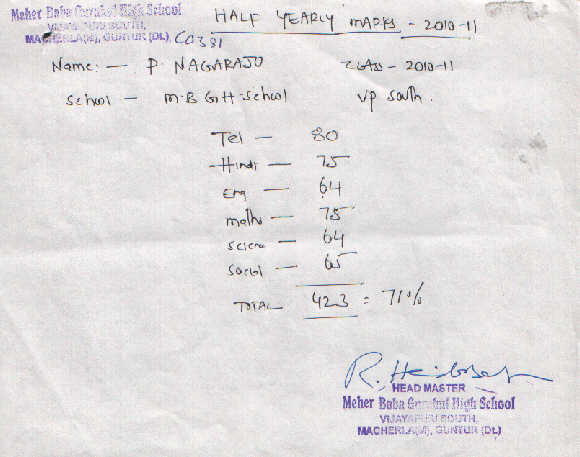 Meher Baba Gurukul High School
VIJAYAPURI SOUTH,
MACHERLA(M), GUNTUR (DL)
C0331
HALF YEARLY MARKS - 2010-11
Name: - P. NAGARAJU CLASS - 2010-11
School - M.B.G.H-School VP South.
Tel - 80
Hindi - 75
Eng - 64
maths - 75
Science - 64
Social - 65
TOTAL 423 = 71%
HEAD MASTER
Meher Baba Gurukul High School
VIJAYAPURI SOUTH,
MACHERLA(M), GUNTUR (DL)